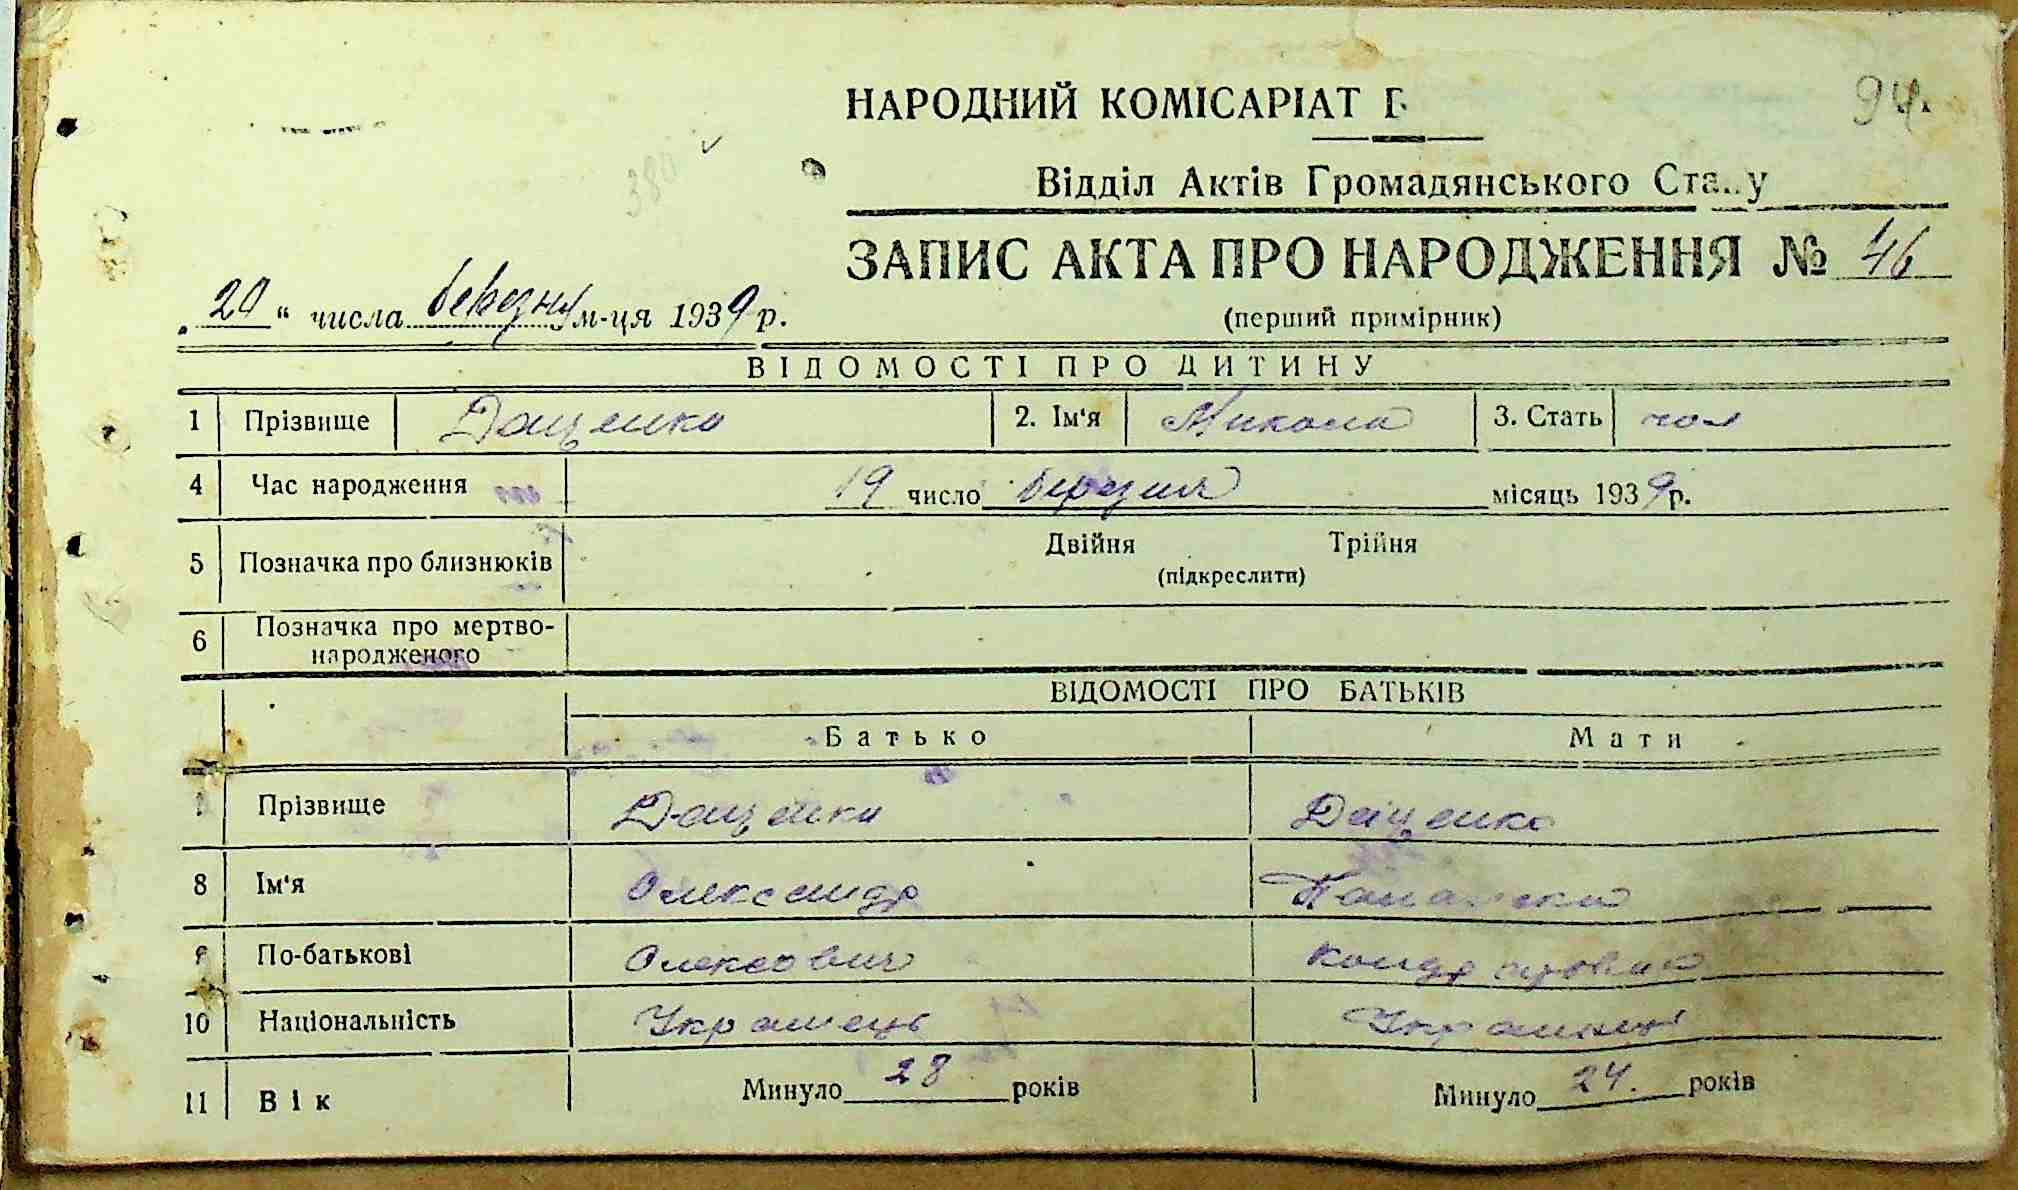 НАРОДНИЙ КОМІСАРІАТ
94.
Відділ Актів Громадянського Стану
380
ЗАПИС АКТА ПРО НАРОДЖЕННЯ № 46
(перший примірник)
„20“ числа березня м-ця 1939 р.
ВІДОМОСТІ ПРО ДИТИНУ
1 Прізвище Даценко 2. Ім'я Микола 3. Стать чол
4 Час народження 19 число березня місяць 1939 р.
5 Позначка про близнюків Двійня Трійня
(підкреслити)
6 Позначка про мертво-
народженого
ВІДОМОСТІ ПРО БАТЬКІВ
Батько Мати
Прізвище Даценко Даценко
8 Ім'я Олександр
По-батькові Олексович
10 Національність Українець Українка
11 Вік Минуло 28 років Минуло 24. років